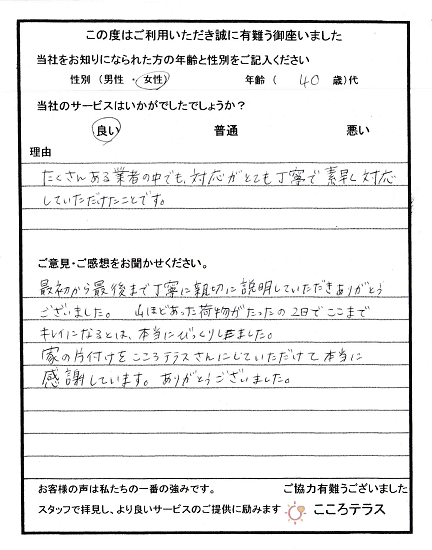 この度はご利用いただき誠に有難う御座いました
当社をお知りになられた方の年齢と性別をご記入ください
性別 (男性 ・ 女性)　　年齢 ( 40 歳)代
当社のサービスはいかがでしたでしょうか？
良い　　普通　　悪い
理由
たくさんある業者の中でも、対応がとても丁寧で 素早く対応
していただけたことです。
ご意見・ご感想をお聞かせください。
最初から最後まで丁寧に親切に説明していただきありがとう
ございました。 山ほどあった荷物がたったの2日でここまで
キレイになるとは、本当にびっくりしました。
家の片付けをこころテラスさんにしていただけて本当に
感謝しています。ありがとうございました。
お客様の声は私たちの一番の強みです。　　ご協力有難うございました
スタッフで拝見し、より良いサービスのご提供に励みます　こころテラス